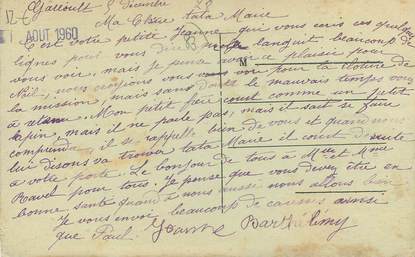 Gattoult 8 Décembre 28
12-6
AOUT 1960
Ma Chère tata Marie
C'est votre petite Jeanne qui vous écris ces quelques
lignes pour vous dire languit beaucoup de
vous voir, mais je pense avoir ce plaisir pour
M
Noël, nous croyions vous voir pour la cloture de
la mission, mais sans doute le mauvais temps vous
a retenu. Mon petit frère court comme un petit
lapin, mais il ne parle pas; mais il sait se faire
comprendre, il se rappelle bien de vous et quand nous
lui disons va trouver tata Marie il court de suite
à votre porte. Le bonjour de tous à Melle et Mme
Ravel pour tous. Je pense que vous devez être en
bonne santé quand à nous aussi nous allons bien
Je vous envoi beaucoup de caresses ainsi
que Paul. Jeanne Barthélémy